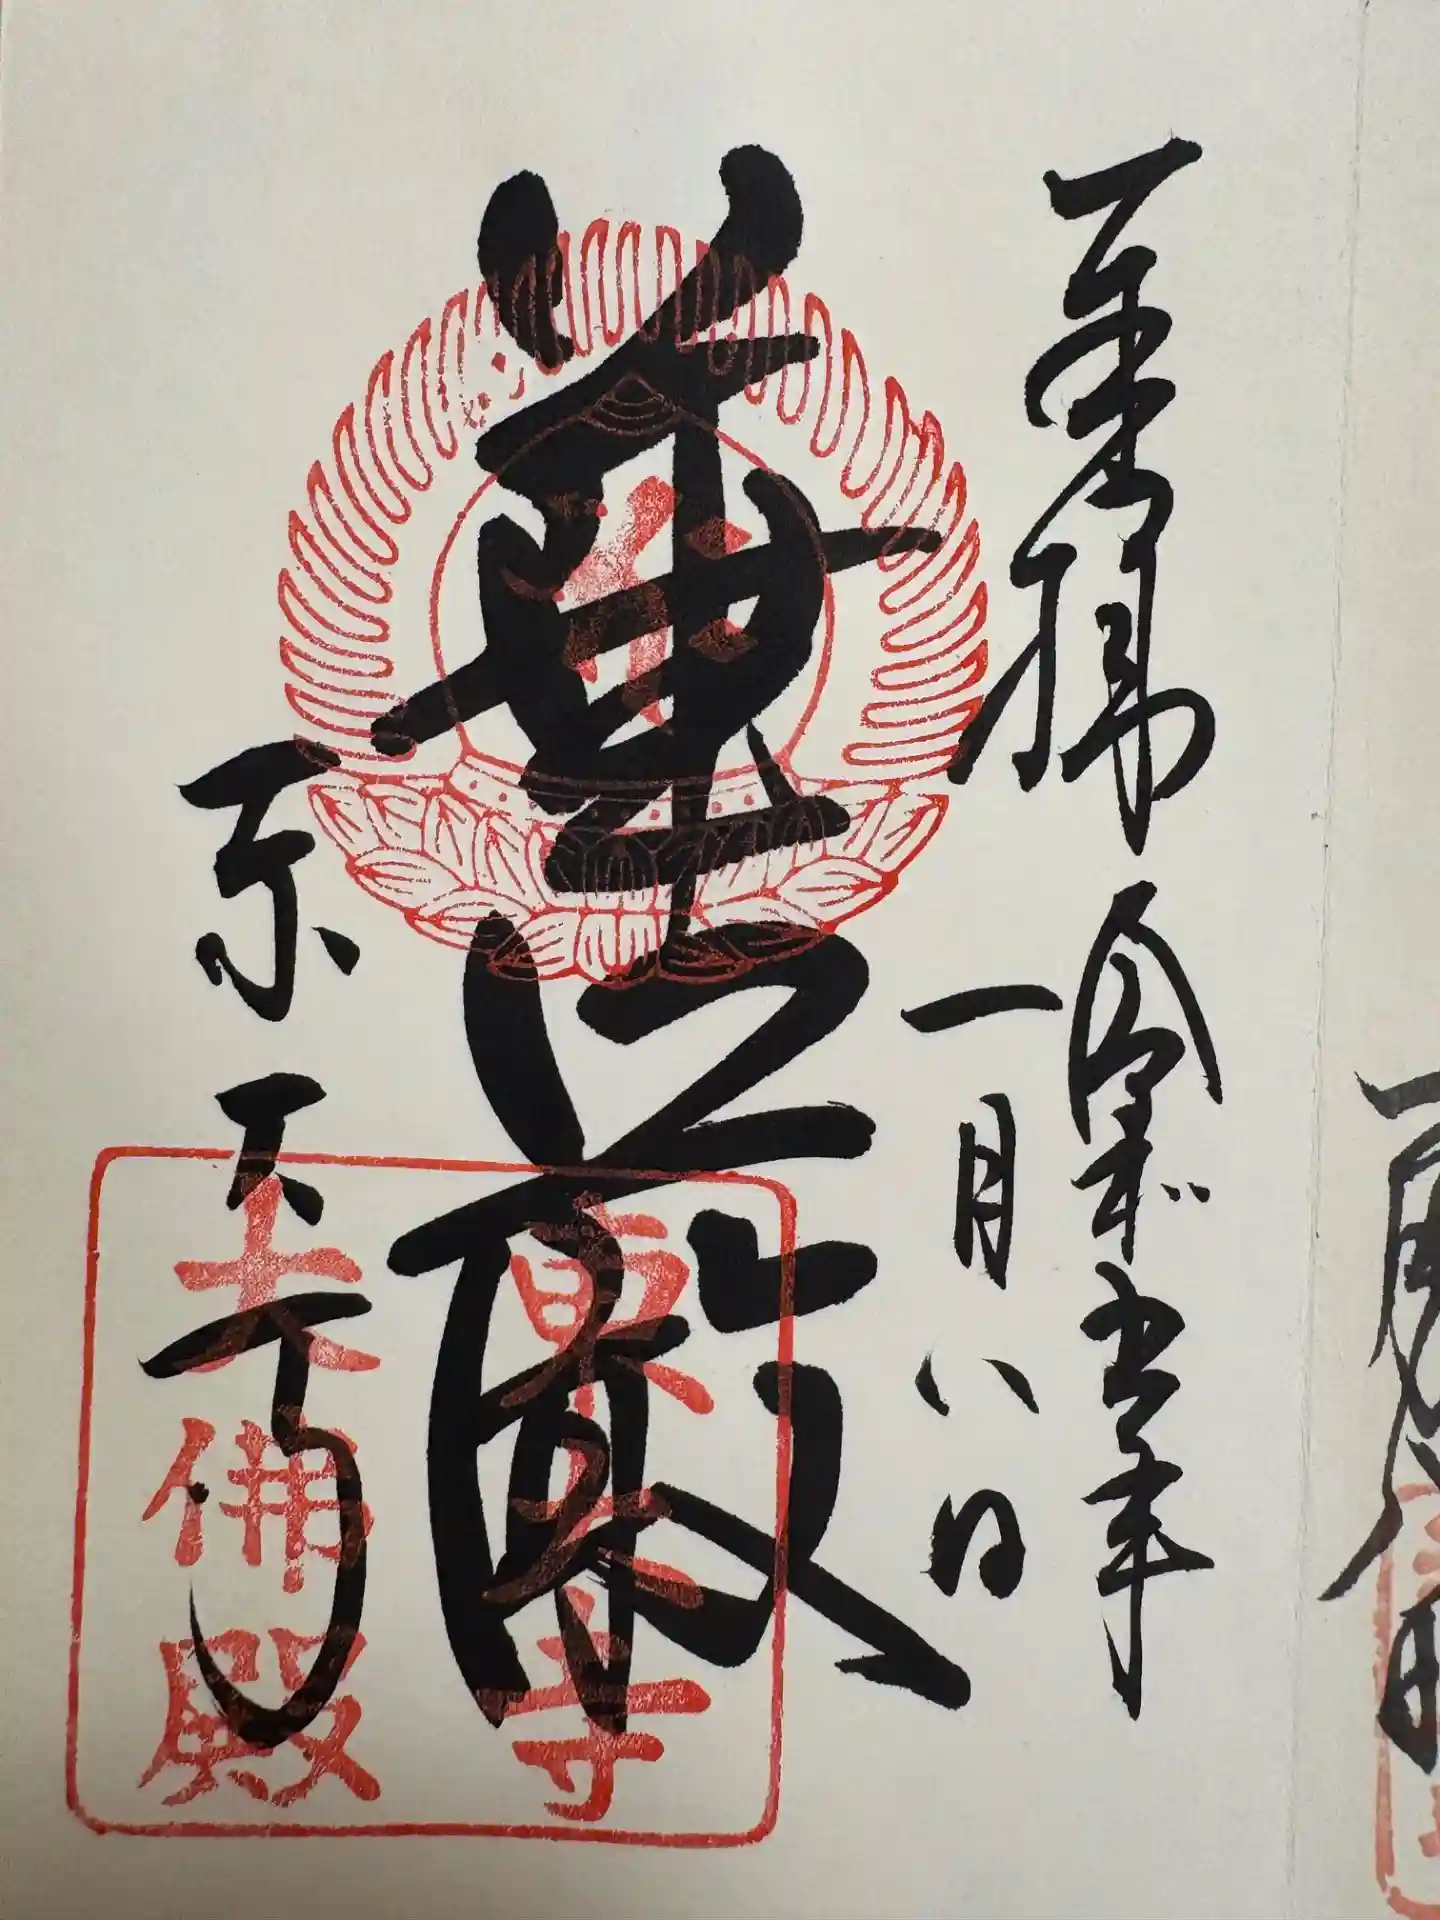 奉拝 令和五年
一月八日
華嚴
東大寺
東大寺
大佛殿